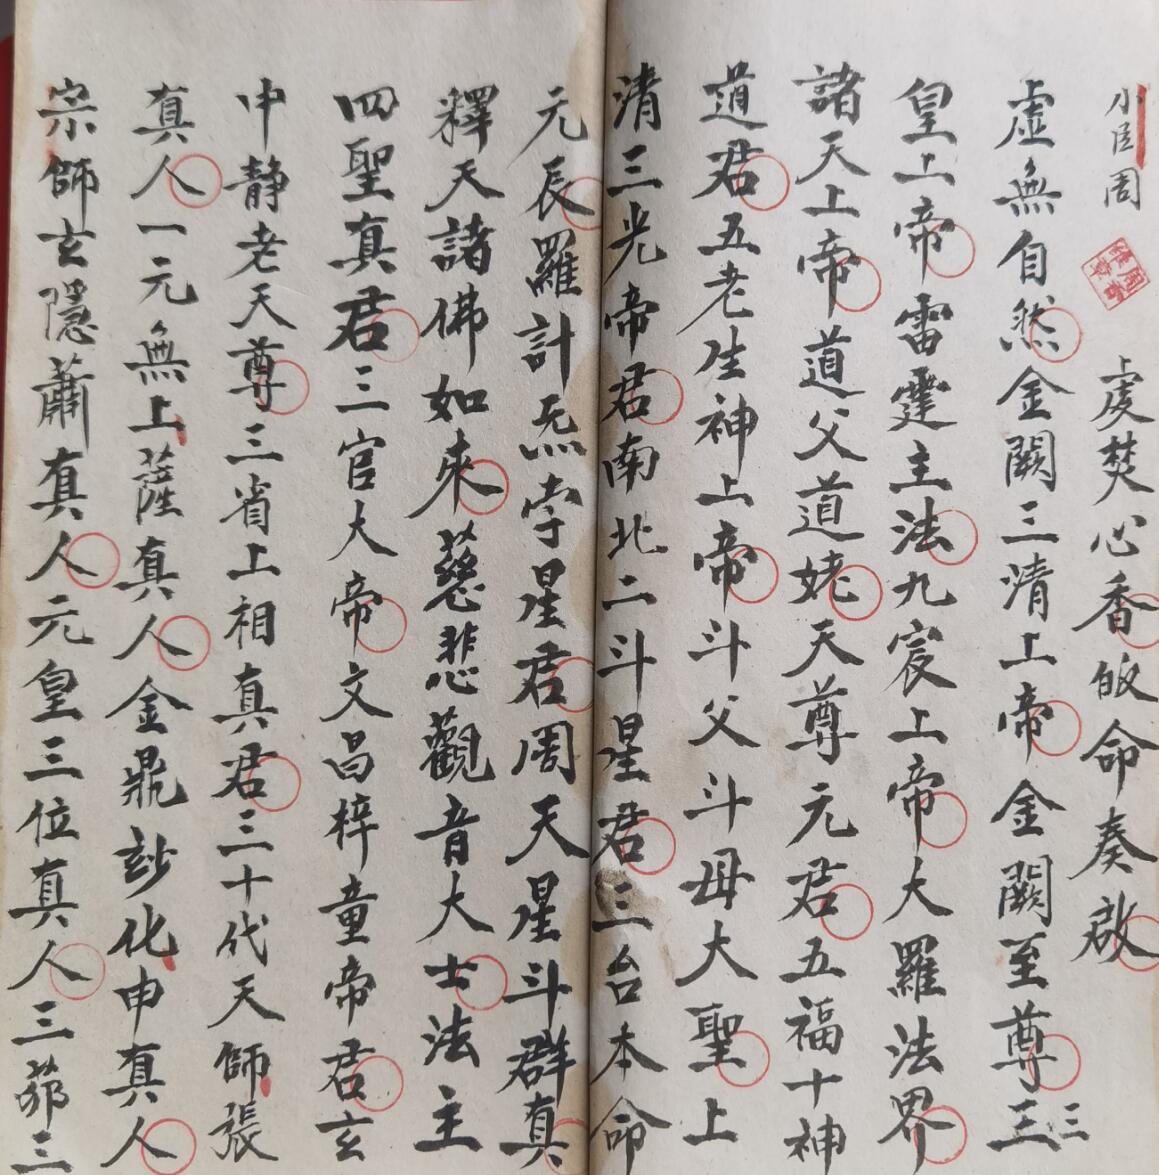 小臣周 虔焚心香皈命奏啟
虛無自然金闕三清上帝金闕至尊三
三
皇上帝雷霆主法九宸上帝大羅法界
諸天上帝道父道姥天尊元君五福十神
道君五老生神上帝斗父斗母大聖上
清三光帝君南北二斗星君三台本命
元辰羅計炁孛星君周天星斗群真
釋天諸佛如來慈悲觀音大士法主
四聖真君三官大帝文昌梓童帝君玄
中靜老天尊三省上相真君三十代天師張
真人一元無上薩真人金鼎妙化申真人
宗師玄隱蕭真人元皇三位真人三茆三